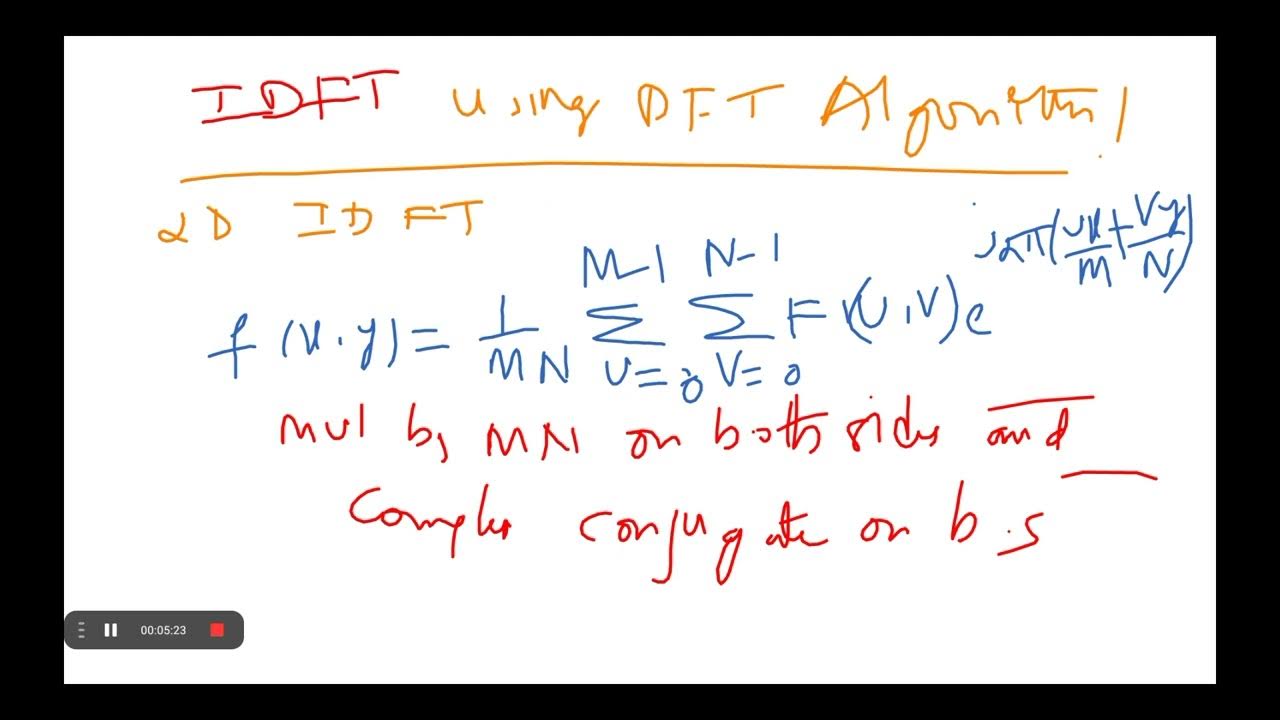 IDFT using DFT Algorithm
2D IDFT
f(x,y) = 1/MN M-1 Σ u=0 N-1 Σ v=0 F(u,v) e j2π(ux/M + vy/N)
mul by MN on both sides and
Complex conjugate on b.s
00:05:23